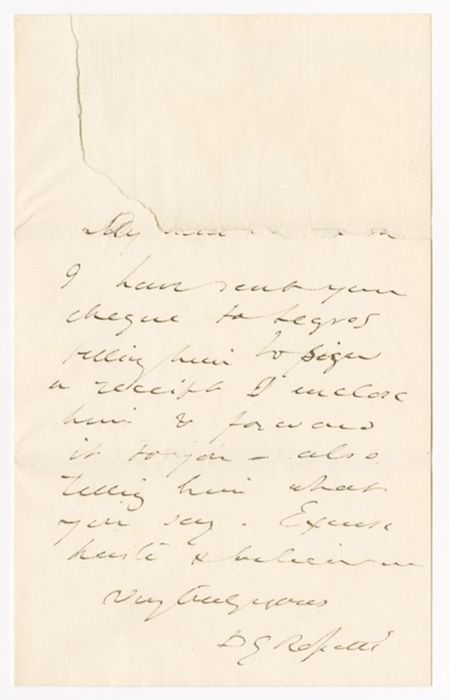 My
I have sent your
cheque to Legros
telling him to sign
a receipt I enclose
him & forward
it to you – also
telling him what
you say. Excuse
haste & believe me
Very truly yours
D G Rossetti